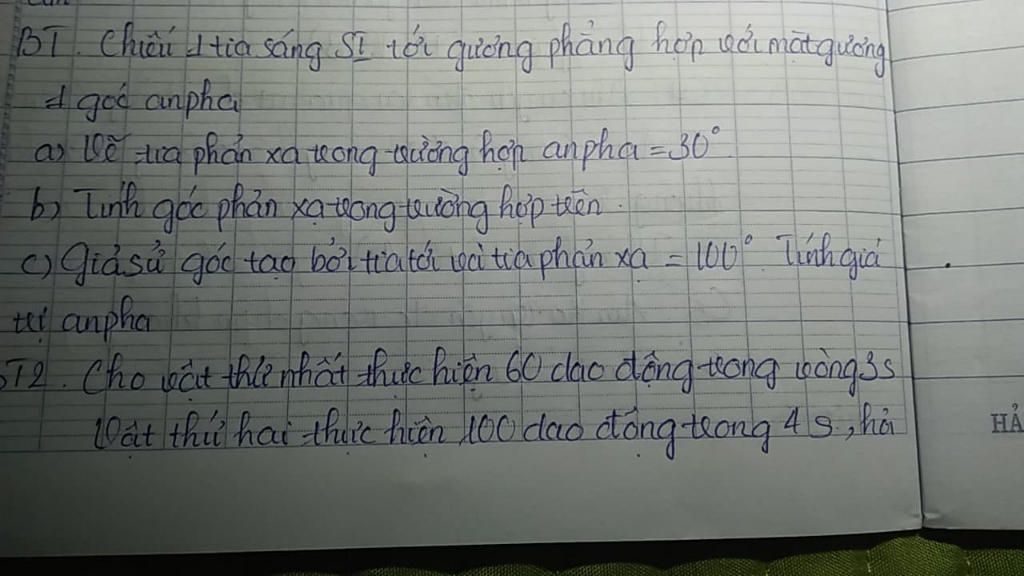 BT. Chiếu 1 tia sáng SI tới gương phẳng hợp với mặt gương
1 góc anpha
a) Vẽ tia phản xạ trong trường hợp anpha = 30°
b) Tính góc phản xạ trong trường hợp trên.
c) Giả sử góc tạo bởi tia tới và tia phản xạ = 100° Tính giá
trị anpha
BT2. Cho vật thứ nhất thực hiện 60 dao động trong vòng 3s
Vật thứ hai thực hiện 100 dao động trong 4s, hỏi
HẢ